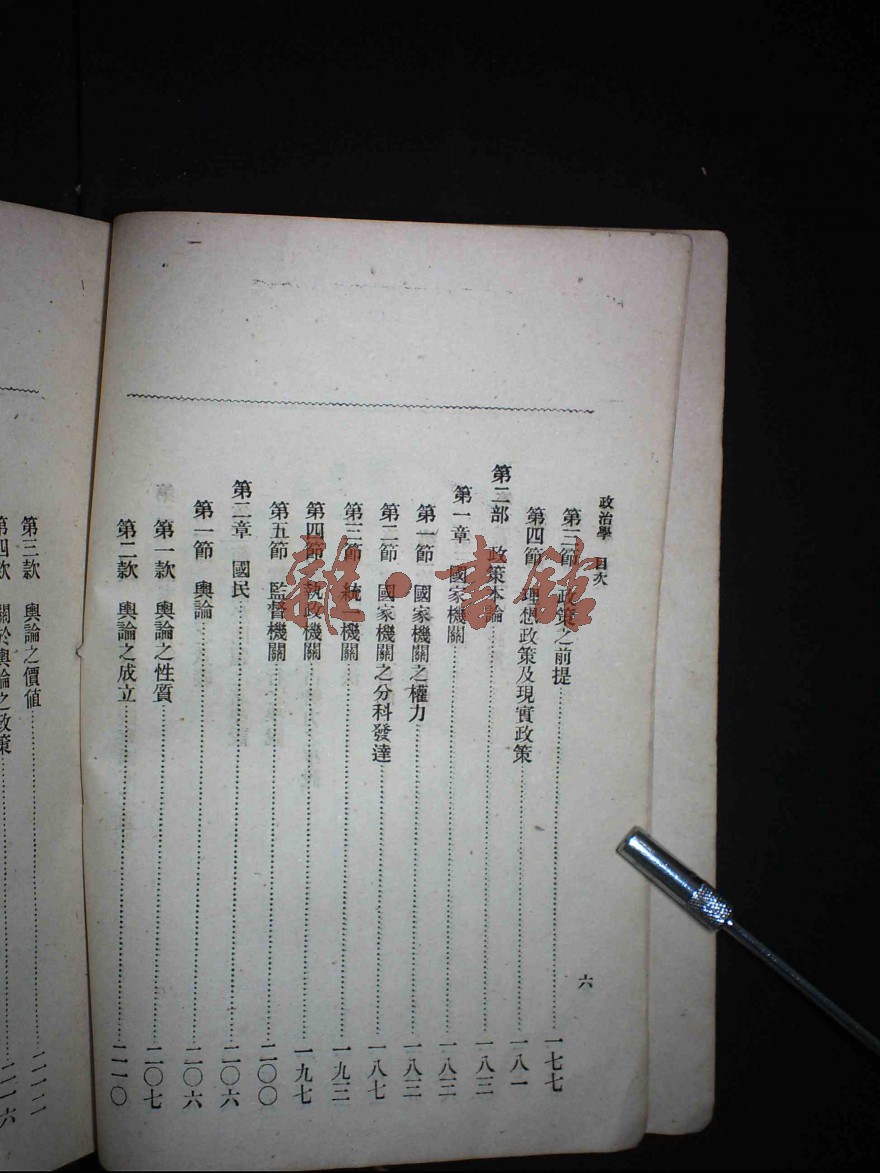 政治學 目次 六
第三節 政策之前提……一七七
第四節 理想政策及現實政策……一八一
第二部 政策本論……一八三
第一章 國家機關……一八三
第一節 國家機關之權力……一八三
第二節 國家機關之分科發達……一八七
第三節 統一機關……一九三
第四節 執政機關……一九七
第五節 監督機關……二〇〇
第二章 國民……二〇六
第一節 輿論……二〇六
第一款 輿論之性質……二〇七
第二款 輿論之成立……二一〇
第三款 輿論之價值……二一二
第四款 關於輿論之政策……二一六
雜·書館